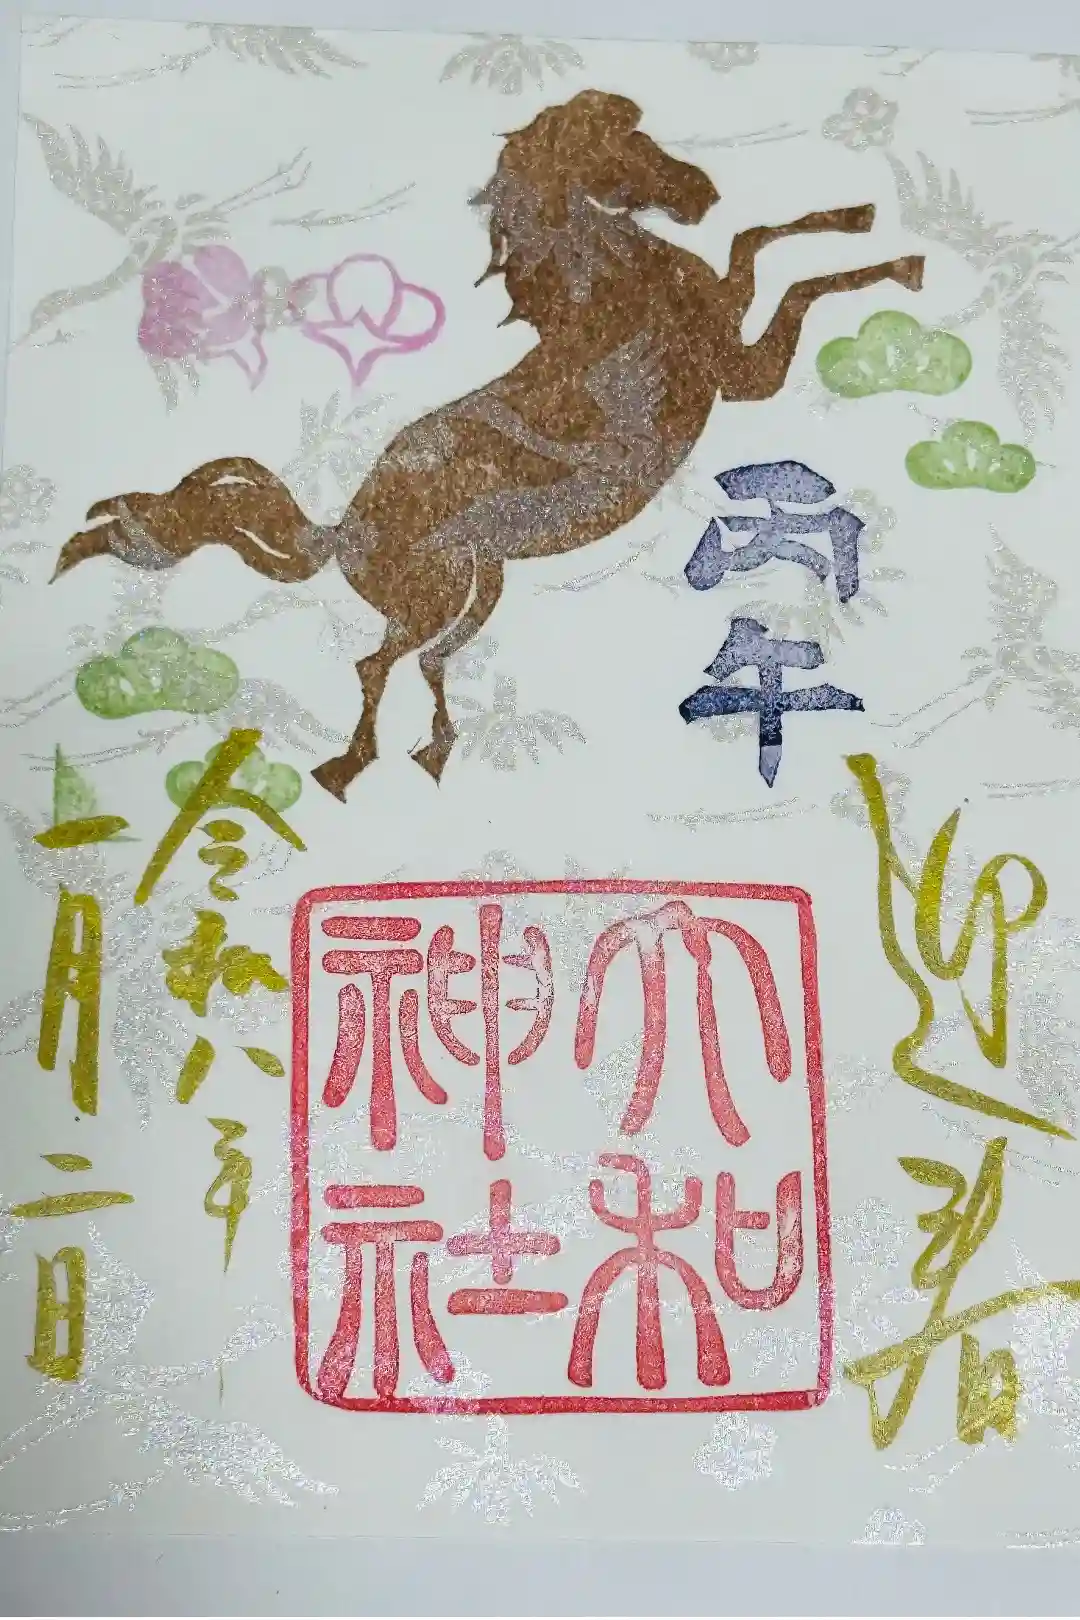 迎春
丙午
大和
神社
令和八年
一月二日